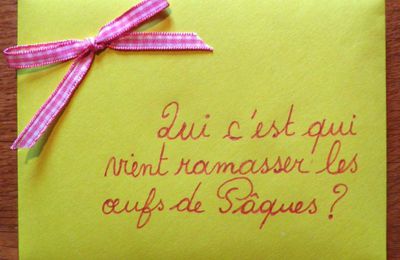 Qui c'est qui
vient ramasser les
œufs de Pâques ?